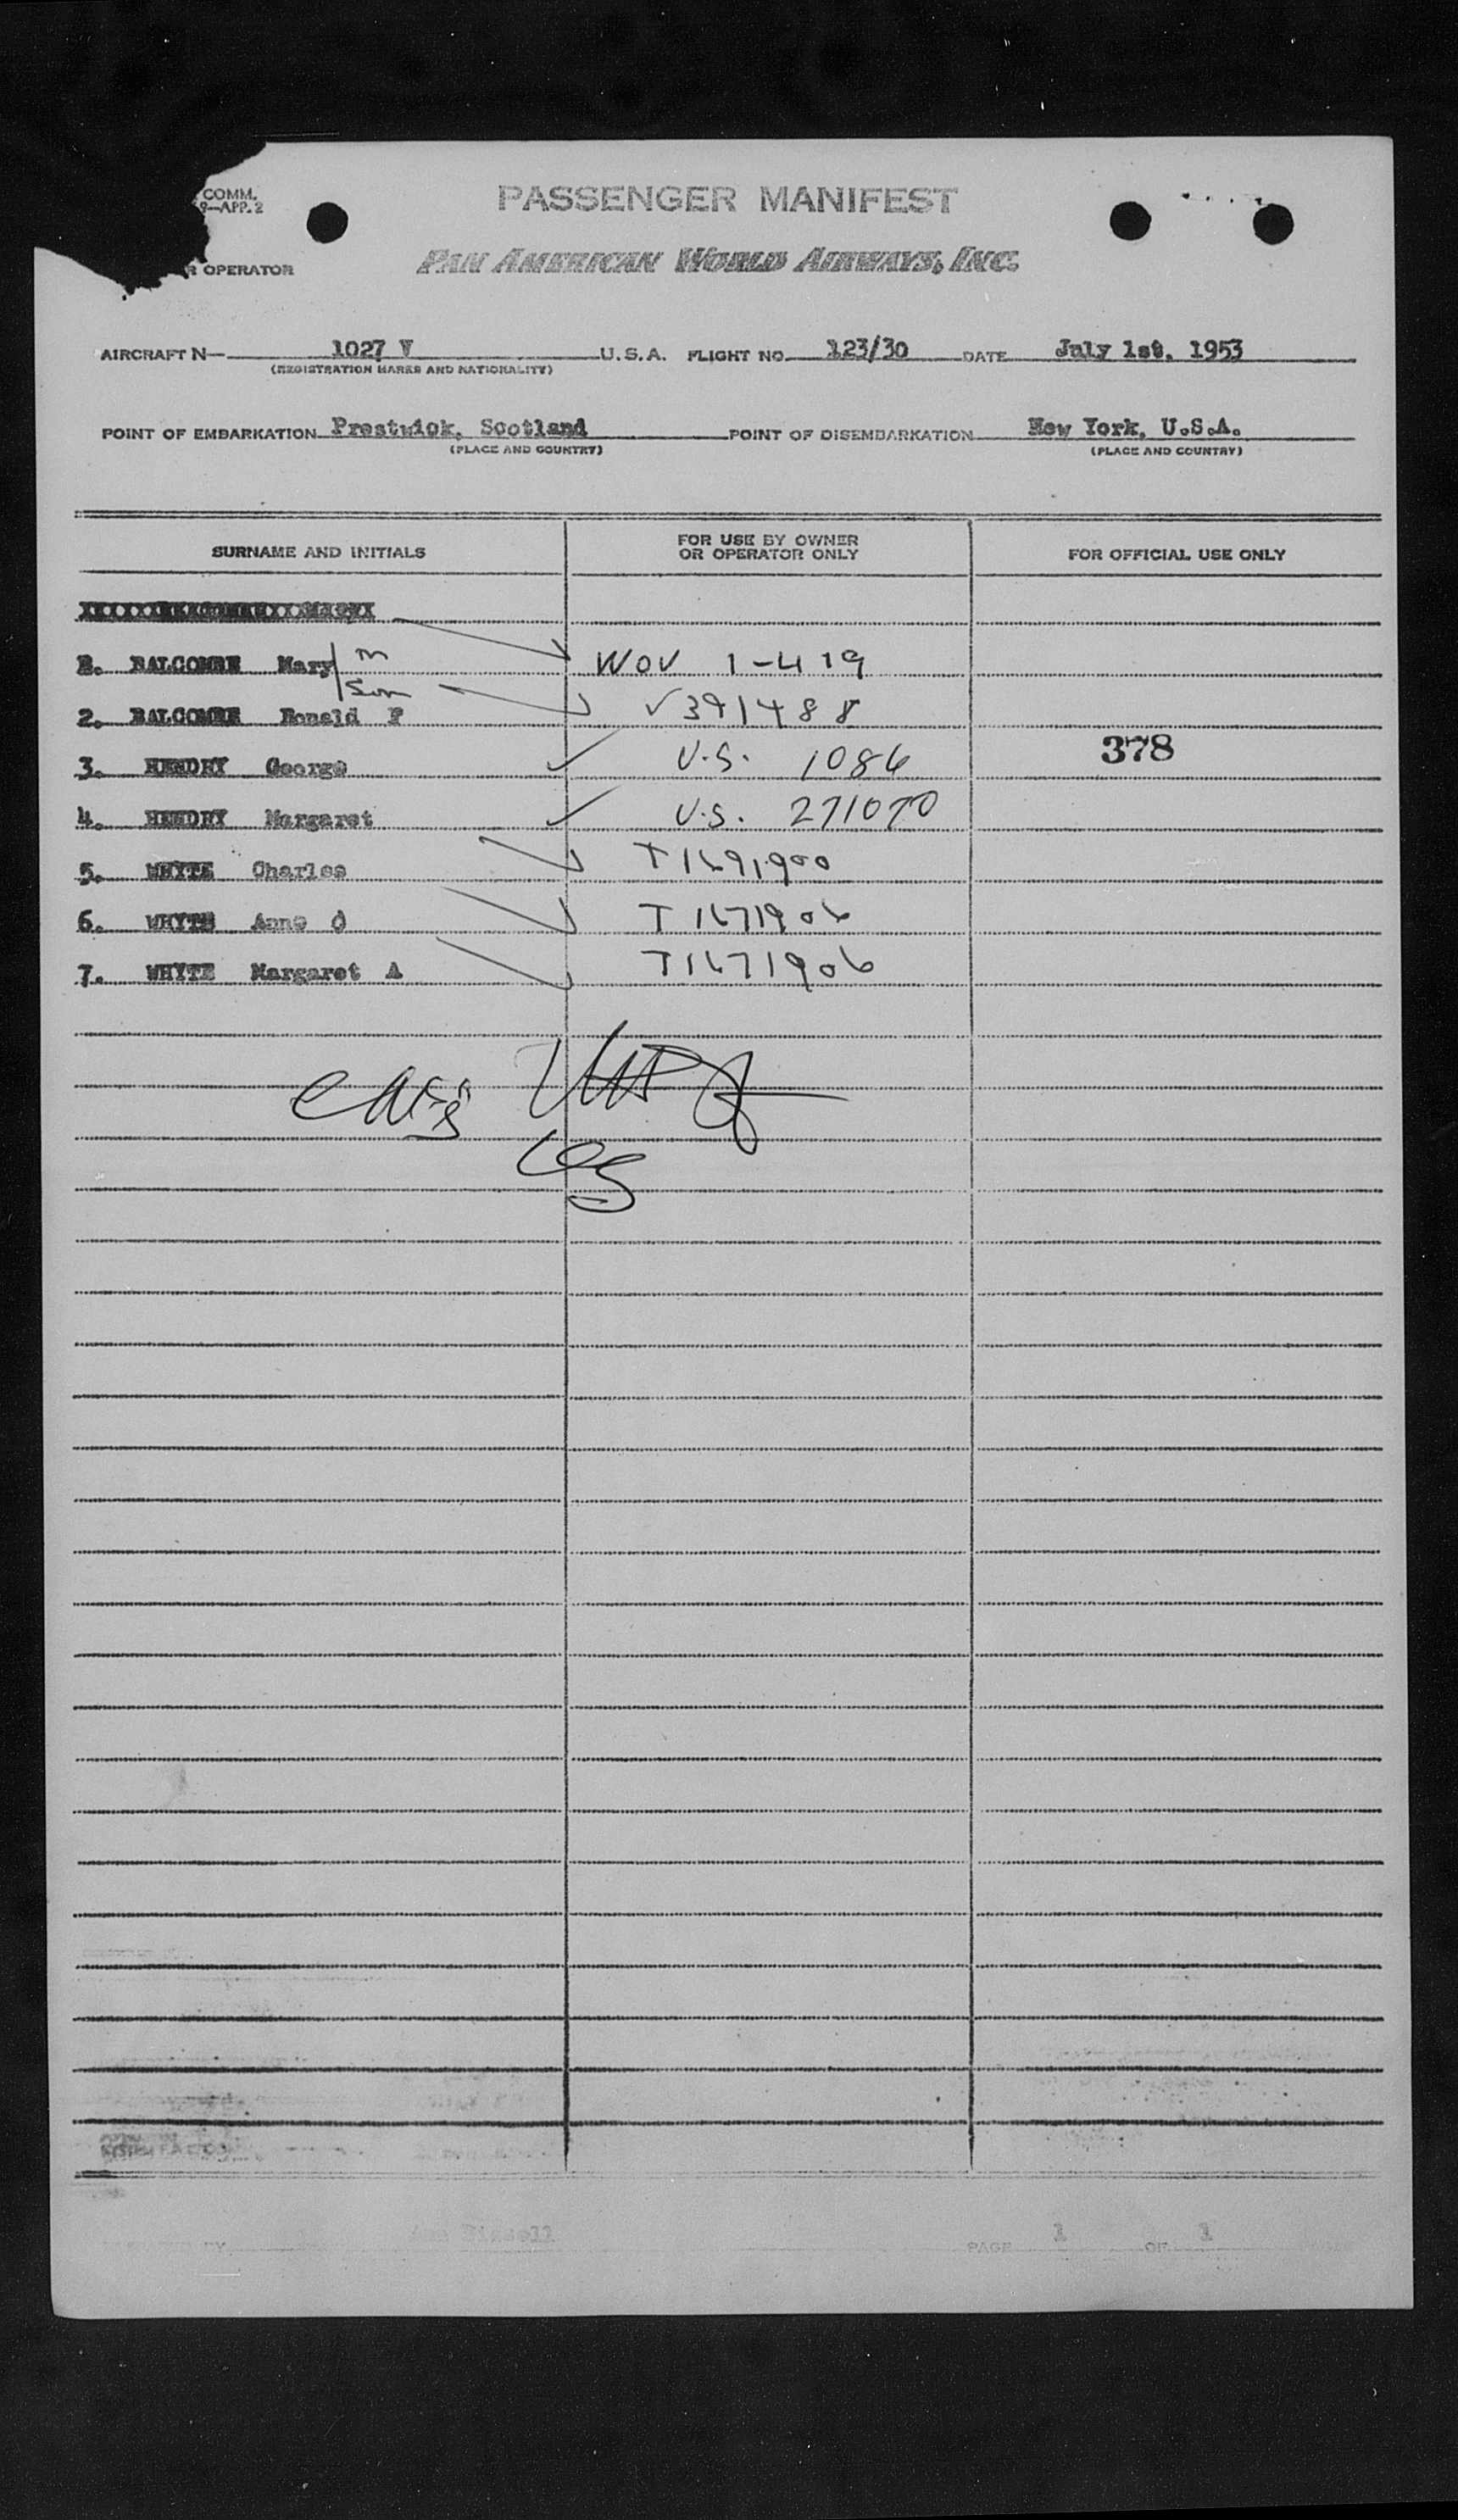 COMM.
9—APP. 2
R OPERATOR
PASSENGER MANIFEST
PAN AMERICAN WORLD AIRWAYS, INC.
AIRCRAFT N— 1027 V U.S.A. FLIGHT NO. 123/30 DATE July 1st, 1953
(REGISTRATION MARKS AND NATIONALITY)
POINT OF EMBARKATION Prestwick, Scotland POINT OF DISEMBARKATION New York, U.S.A.
(PLACE AND COUNTRY) (PLACE AND COUNTRY)
SURNAME AND INITIALS FOR USE BY OWNER OR OPERATOR ONLY FOR OFFICIAL USE ONLY
BALCOMBE Mary m WOV 1-419
Son
2. BALCOMBE Ronald F V391488
3. HENDRY George U.S. 1086 378
4. HENDRY Margaret U.S. 271070
5. WHYTE Charles T1691900
6. WHYTE Anne O T1671906
7. WHYTE Margaret A T1671906
PAGE 1 OF 1